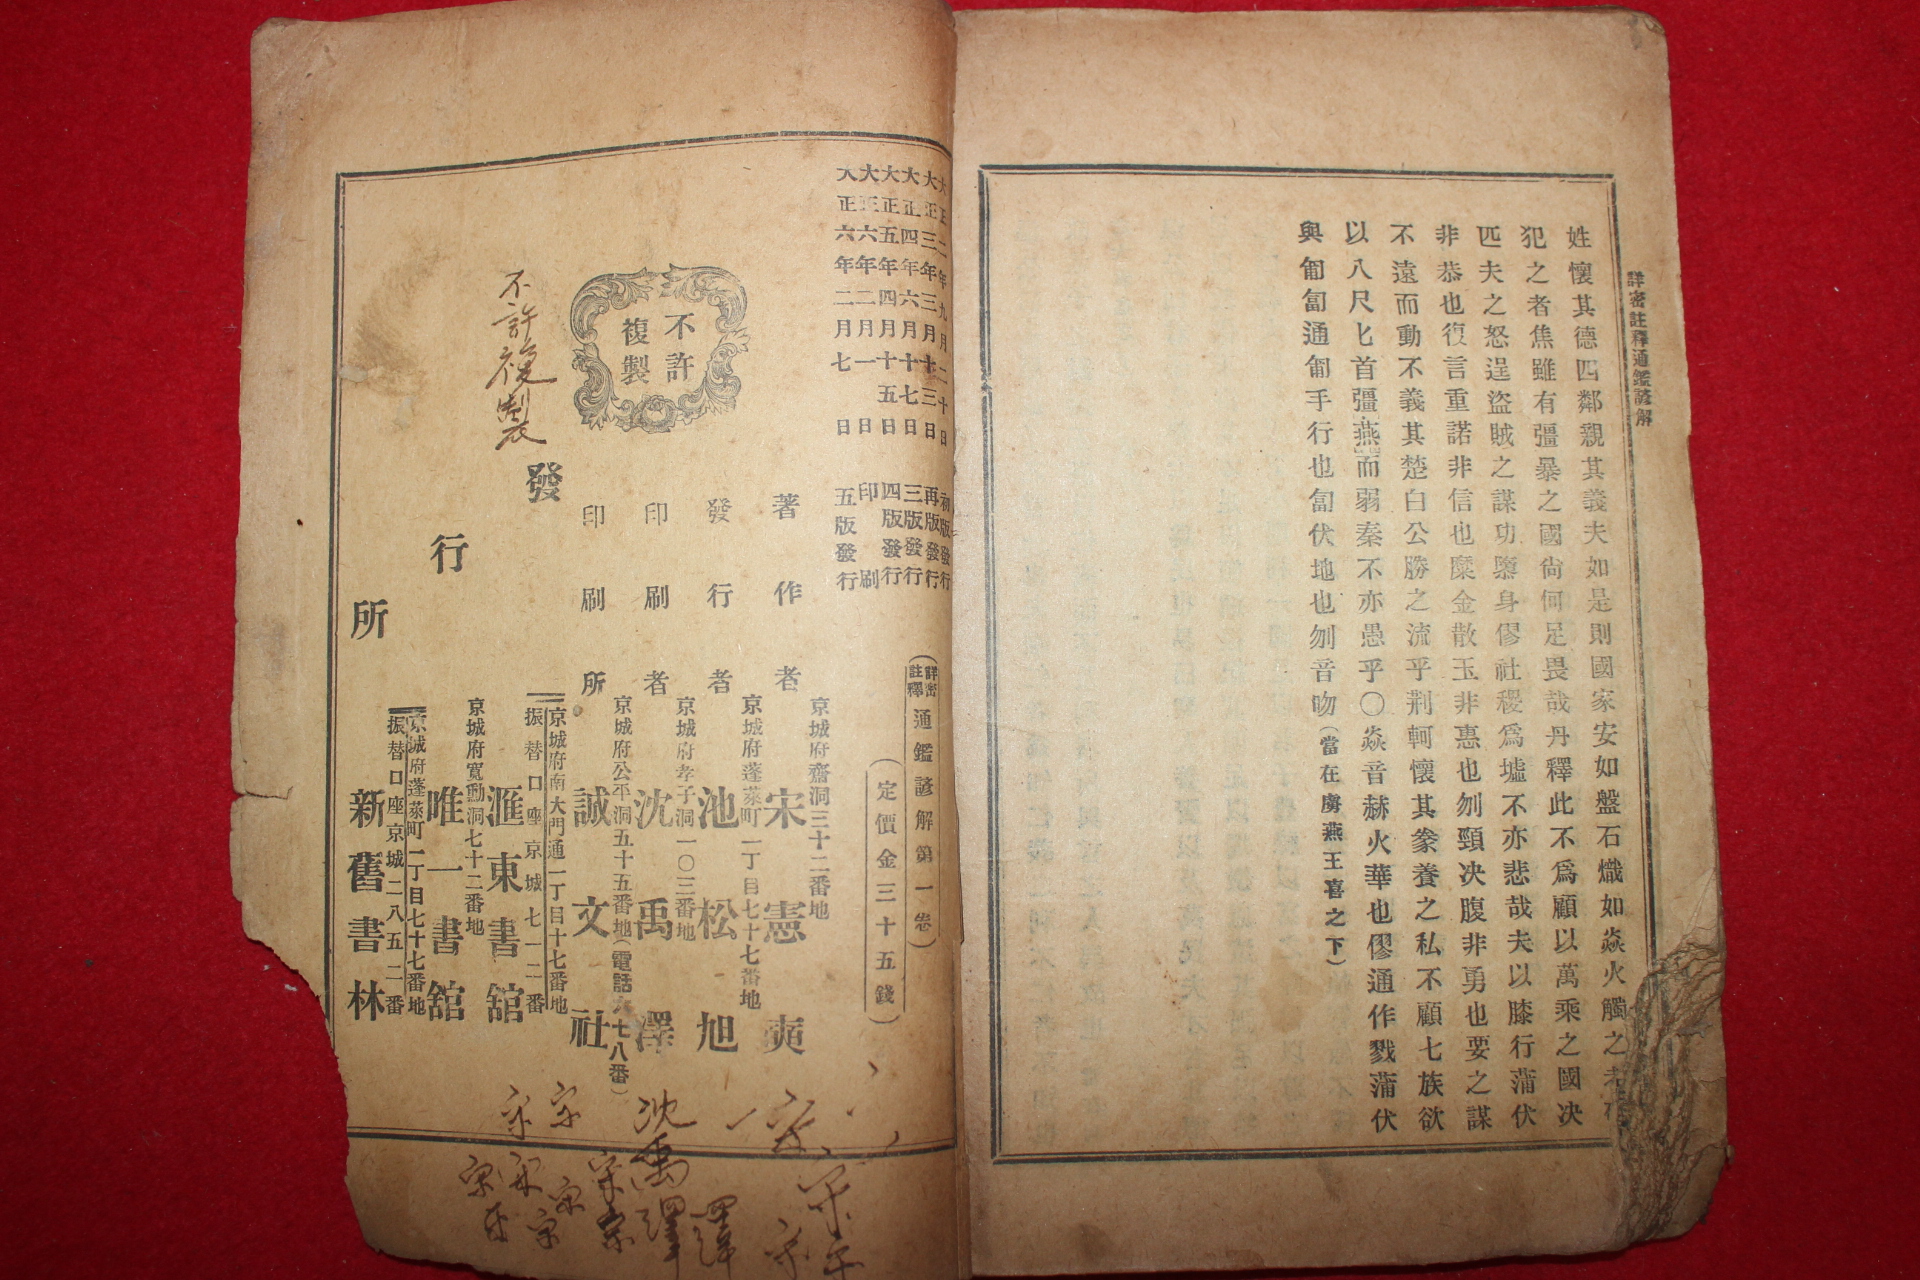 詳密註釋通鑑諺解
姓懷其德四鄰親其義夫如是則國家安如盤石熾如焱火觸之者
犯之者焦雖有彊暴之國尙何足畏哉丹釋此不爲顧以萬乘之國决
匹夫之怒逞盜賊之謀功隳身僇社稷爲墟不亦悲哉夫以膝行蒲伏
非恭也復言重諾非信也糜金散玉非惠也刎頸决腹非勇也要之謀
不遠而動不義其楚白公勝之流乎荆軻懷其豢養之私不顧七族欲
以八尺匕首彊燕而弱秦不亦愚乎〇焱音赫火華也僇通作戮蒲伏
與匍匐通匍手行也匐伏地也刎音吻(當在虜燕王喜之下)
大正二年九月二十日 初版發行
大正三年三月十三日 再版發行
大正四年六月十七日 三版發行
大正五年四月十五日 四版發行
大正六年二月一日 印刷
大正六年二月七日 五版發行
(詳密註釋通鑑諺解第一卷)
(定價金三十五錢)
不許
複製
不許複製
京城府齋洞三十二番地
著作者 宋憲奭
京城府蓬萊町一丁目七十七番地
發行者 池松旭
京城府孝子洞一〇三番地
印刷者 沈禹澤
京城府公平洞五十五番地(電話六七八番)
印刷所 誠文社
發行所
京城府南大門通一丁目十七番地
振替口座京城七一二番
滙東書舘
京城府寬勳洞七十二番地
唯一書舘
京城府蓬萊町一丁目七十七番地
振替口座京城二八五二番
新舊書林
沈禹澤
澤
宋
宋
宋
宋
宋
宋